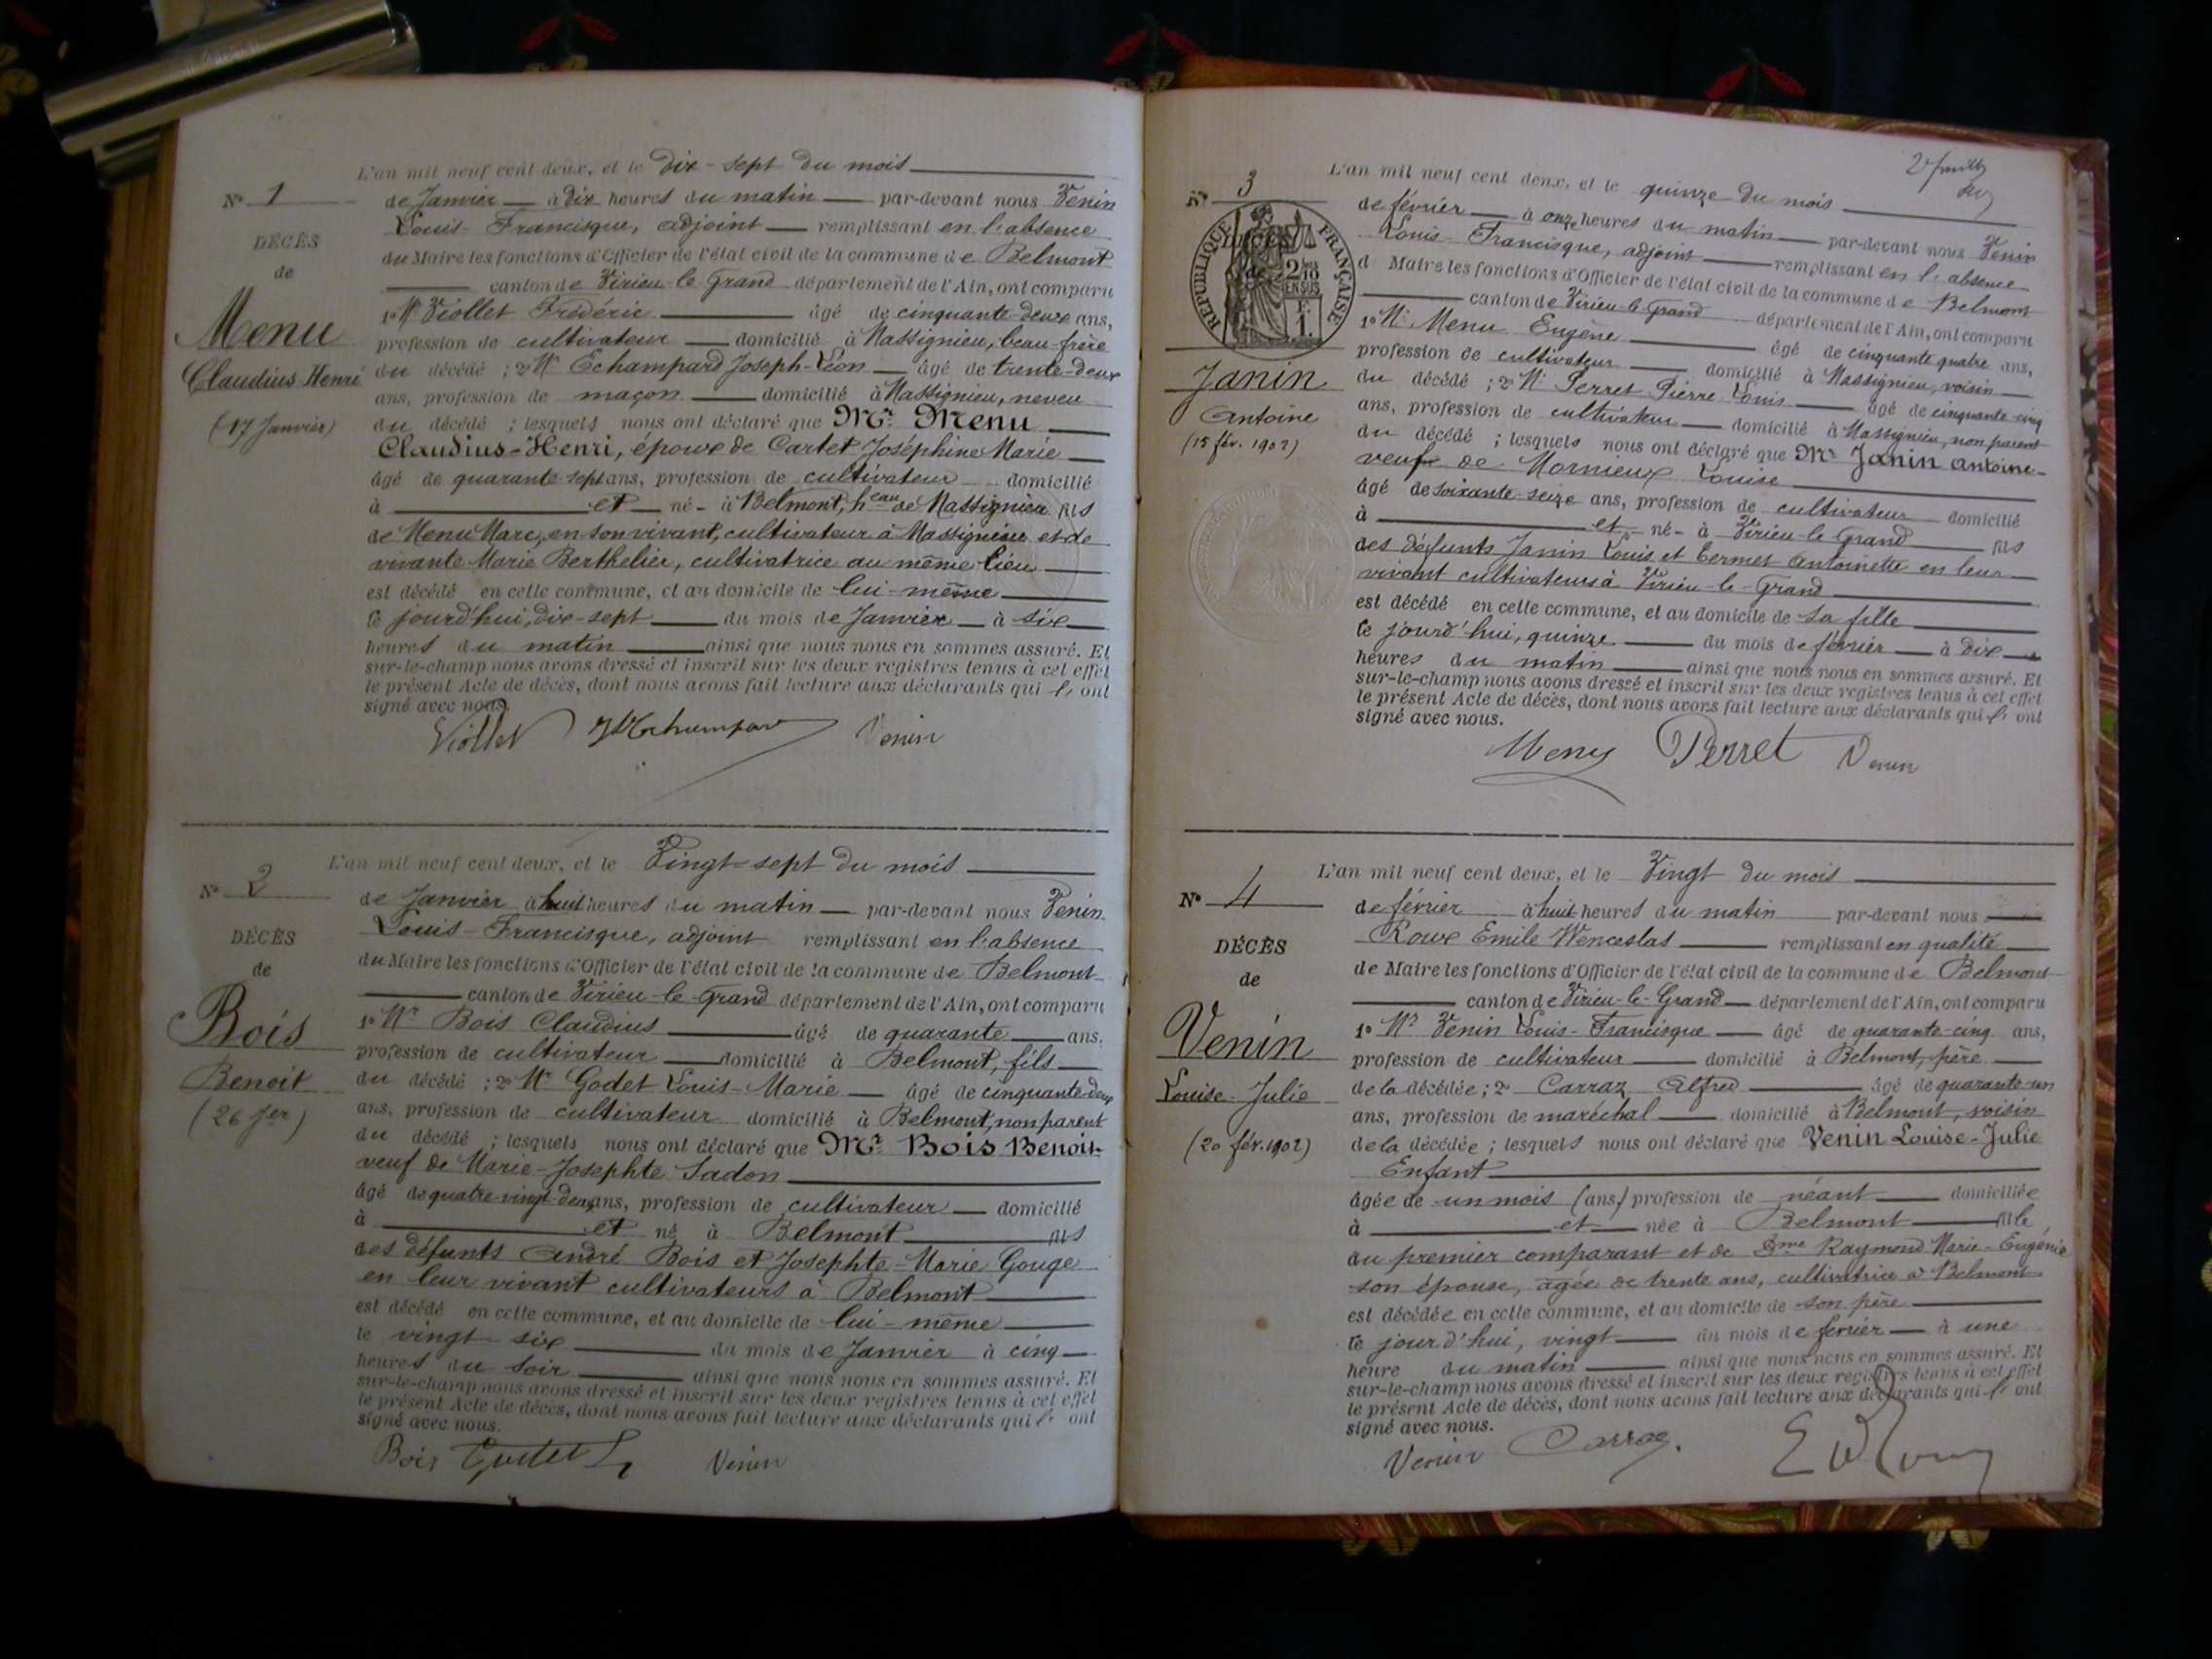 L'an mil neuf cent deux, et le Dix-sept du mois
N° 1
de Janvier à Dix heures du matin par-devant nous Venin
Louis-Francisque, adjoint remplissant en l'absence
DÉCÈS
du Maire les fonctions d'Officier de l'état civil de la commune de Belmont
de
canton de Virieu-le-Grand département de l'Ain, ont comparu
1° Mr Viollet Frédéric âgé de cinquante-deux ans,
Menu
profession de cultivateur domicilié à Massignieu, beau-frère
Claudius-Henri
du décédé ; 2° Mr Echampard Joseph-Léon âgé de trente-deux
ans, profession de maçon domicilié à Massignieu, neveu
(17 Janvier)
du décédé ; lesquels nous ont déclaré que Mr. Menu
Claudius-Henri, époux de Cartet Joséphine Marie
âgé de quarante-sept ans, profession de cultivateur domicilié
à et né à Belmont, heau de Massignieu fils
de Menu Marc, en son vivant, cultivateur à Massignieu et de
vivante Marie Berthelier, cultivatrice au même lieu
est décédé en cette commune, et au domicile de lui-même
le jourd'hui, dix-sept du mois de Janvier à six
heures du matin ainsi que nous nous en sommes assuré. Et
sur-le-champ nous avons dressé et inscrit sur les deux registres tenus à cet effet
le présent Acte de décès, dont nous avons fait lecture aux déclarants qui l' ont
signé avec nous.
Viollet Venin
L'an mil neuf cent deux, et le Vingt-sept du mois
N° 2
de Janvier à huit heures du matin par-devant nous Venin
Louis-Francisque, adjoint remplissant en l'absence
DÉCÈS
du Maire les fonctions d'Officier de l'état civil de la commune de Belmont
de
canton de Virieu-le-Grand département de l'Ain, ont comparu
Bois
1° Mr Bois Claudius âgé de quarante ans,
profession de cultivateur domicilié à Belmont, fils
Benoit
du décédé ; 2° Mr Godet Louis-Marie âgé de cinquante-deux
(26 Jer)
ans, profession de cultivateur domicilié à Belmont, non parent
du décédé ; lesquels nous ont déclaré que Mr. Bois Benoit
veuf de Marie-Josephte Sadon
âgé de quatre-vingt-deux ans, profession de cultivateur domicilié
à et né à Belmont fils
des défunts André Bois et Josephte-Marie Gouge
en leur vivant cultivateurs à Belmont
est décédé en cette commune, et au domicile de lui-même
le vingt-six du mois de Janvier à cinq
heures du soir ainsi que nous nous en sommes assuré. Et
sur-le-champ nous avons dressé et inscrit sur les deux registres tenus à cet effet
le présent Acte de décès, dont nous avons fait lecture aux déclarants qui l' ont
signé avec nous.
Bois Venin
L'an mil neuf cent deux, et le quinze du mois
N° 3
de février à onze heures du matin par-devant nous Venin
Louis-Francisque, adjoint remplissant en l'absence
DÉCÈS
de
RÉPUBLIQUE FRANÇAISE
2/10 EN SUS
F. 1.
d Maire les fonctions d'Officier de l'état civil de la commune de Belmont
canton de Virieu-le-Grand département de l'Ain, ont comparu
1° Mr. Menu Eugène âgé de cinquante quatre ans,
profession de cultivateur domicilié à Massignieu, voisin
Janin
du décédé ; 2° Mr Perret Pierre Louis âgé de cinquante-cinq
Antoine
ans, profession de cultivateur domicilié à Massignieu, non parent
(15 fév. 1902)
du décédé ; lesquels nous ont déclaré que Mr Janin Antoine
veuf de Mornieux Louise
âgé de soixante-seize ans, profession de cultivateur domicilié
à et né à Virieu-le-Grand fils
des défunts Janin Louis et Antoinette en leur
vivant cultivateurs à Virieu-le-Grand
est décédé en cette commune, et au domicile de sa fille
le jourd'hui, quinze du mois de février à dix
heures du matin ainsi que nous nous en sommes assuré. Et
sur-le-champ nous avons dressé et inscrit sur les deux registres tenus à cet effet
le présent Acte de décès, dont nous avons fait lecture aux déclarants qui l' ont
signé avec nous.
Menu Perret Venin
L'an mil neuf cent deux, et le Vingt du mois
N° 4
de février à huit heures du matin par-devant nous
Roux Emile Wenceslas remplissant en qualité
DÉCÈS
de Maire les fonctions d'Officier de l'état civil de la commune de Belmont
de
canton de Virieu-le-Grand département de l'Ain, ont comparu
Venin
1° Mr Venin Louis-Francisque âgé de quarante-cinq ans,
profession de cultivateur domicilié à Belmont, père
Louise-Julie
de la décédée ; 2° Carraz Alfred âgé de quarante-un
ans, profession de maréchal domicilié à Belmont, voisin
(20 fév. 1902)
de la décédée ; lesquels nous ont déclaré que Venin Louise-Julie
Enfant
âgée de un mois (ans) profession de néant domiciliée
à et née à Belmont fille
du premier comparant et de Dme Raymond Marie-Eugénie
son épouse, agée de trente ans, cultivatrice à Belmont
est décédée en cette commune, et au domicile de son père
le jour d'hui, vingt du mois de février à une
heure du matin ainsi que nous nous en sommes assuré. Et
sur-le-champ nous avons dressé et inscrit sur les deux registres tenus à cet effet
le présent Acte de décès, dont nous avons fait lecture aux déclarants qui l' ont
signé avec nous.
Venin Carraz